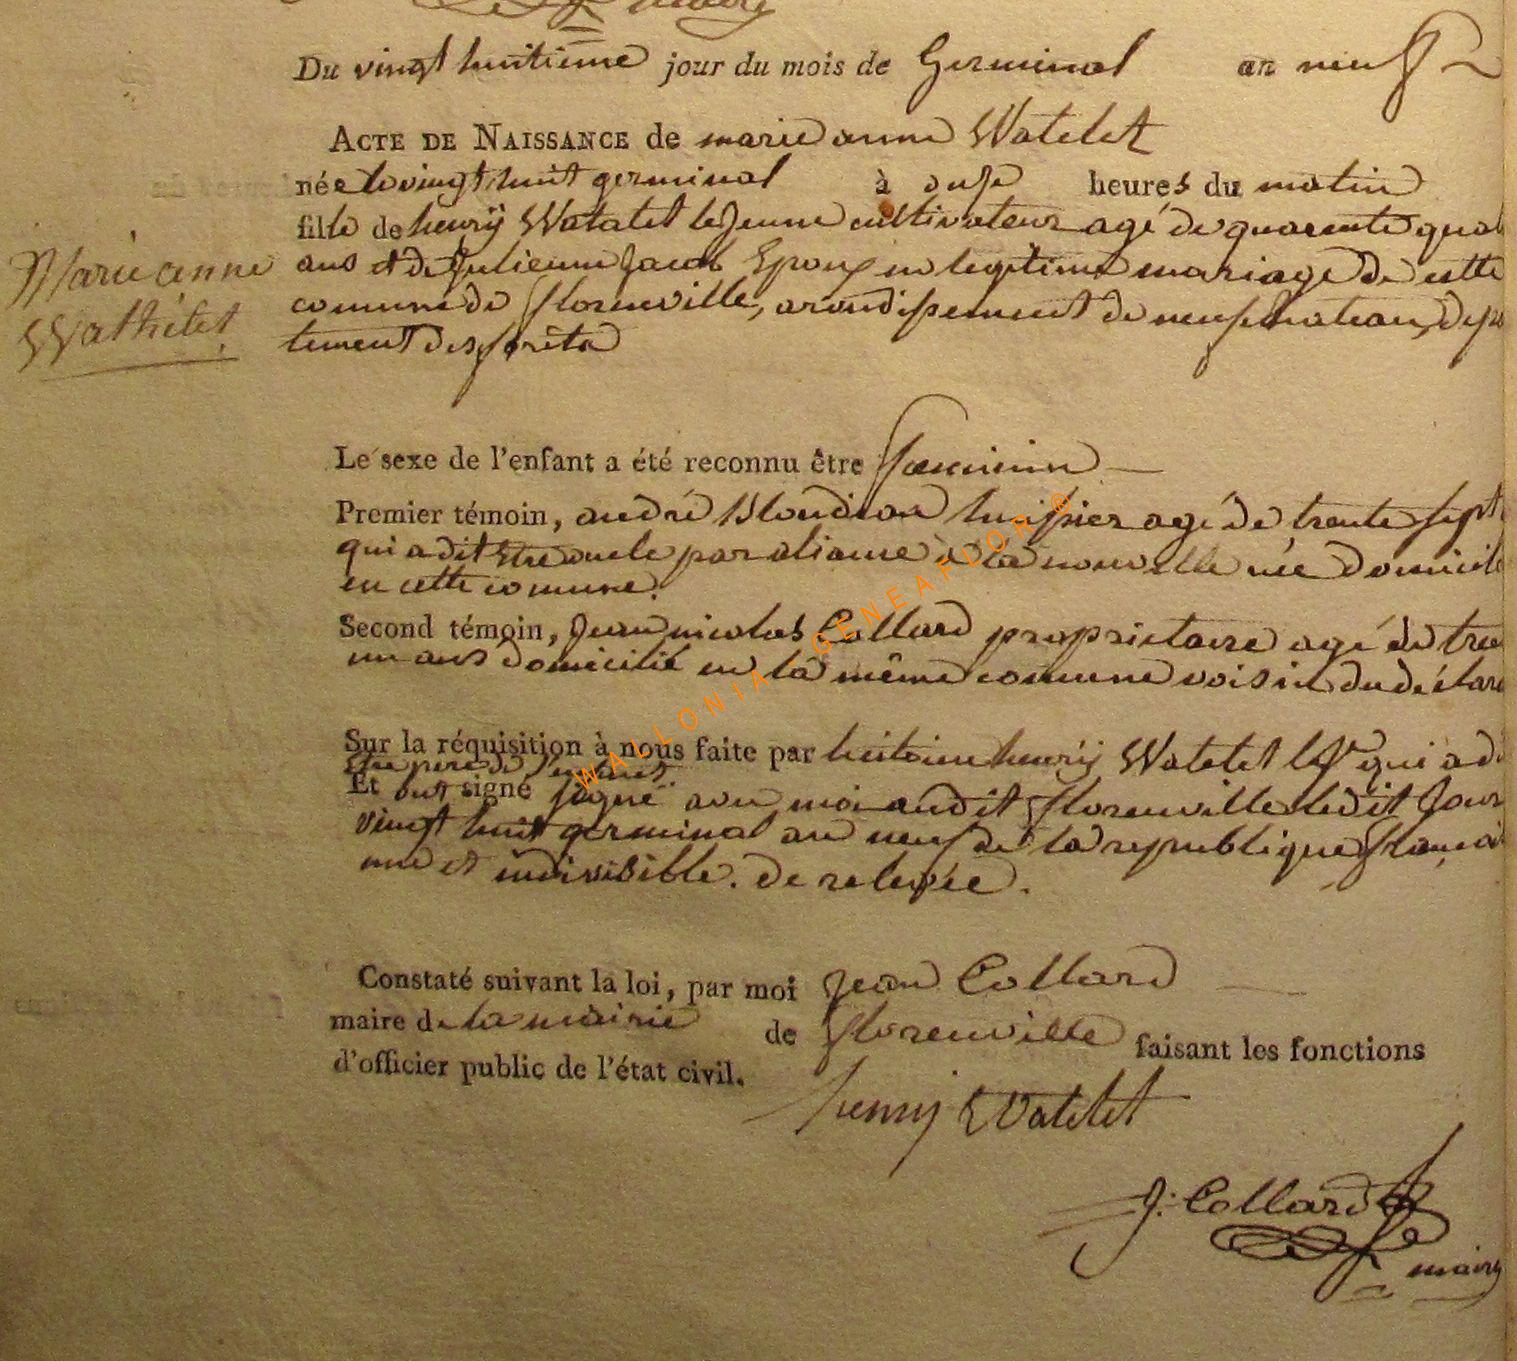 Du vingt huitieme jour du mois de Germinal an neuf
ACTE DE NAISSANCE de marie anne Watelet
née le vingt huit germinal à onse heures du matin
fille de henrÿ Watelet le Jeune cultivateur agé de quarente quat
Marie anne
Wathelet
ans et de Julienne Jacob Epoux en legitime mariage de cette
comune de florenville, arondissement de neufchateau, depa
tement des forêts
Le sexe de l'enfant a été reconnu être feminin
Premier témoin, andré Blondiau huissier agé de trente sept
qui a dit etre oncle par aliance à la nouvelle née domicile
en cette comune.
Second témoin, Jean nicolas Collard proprietaire agé de tren
un ans domicilié en la même comune voisin du déclara
Sur la réquisition à nous faite par henrÿ Watelet le Je qui a di
etre pere de l'enfant
Et ont signé signé avec moi audit florenville ledit Jour
vingt huit germinal an neuf de la republique francai
nne et indivisible. de relevée.
Constaté suivant la loi, par moi Jean Collard
maire de la mairie de florenville faisant les fonctions
d'officier public de l'état civil.
henrij Watelet
J: Collard
maire
WALLONIA GENEARDORR